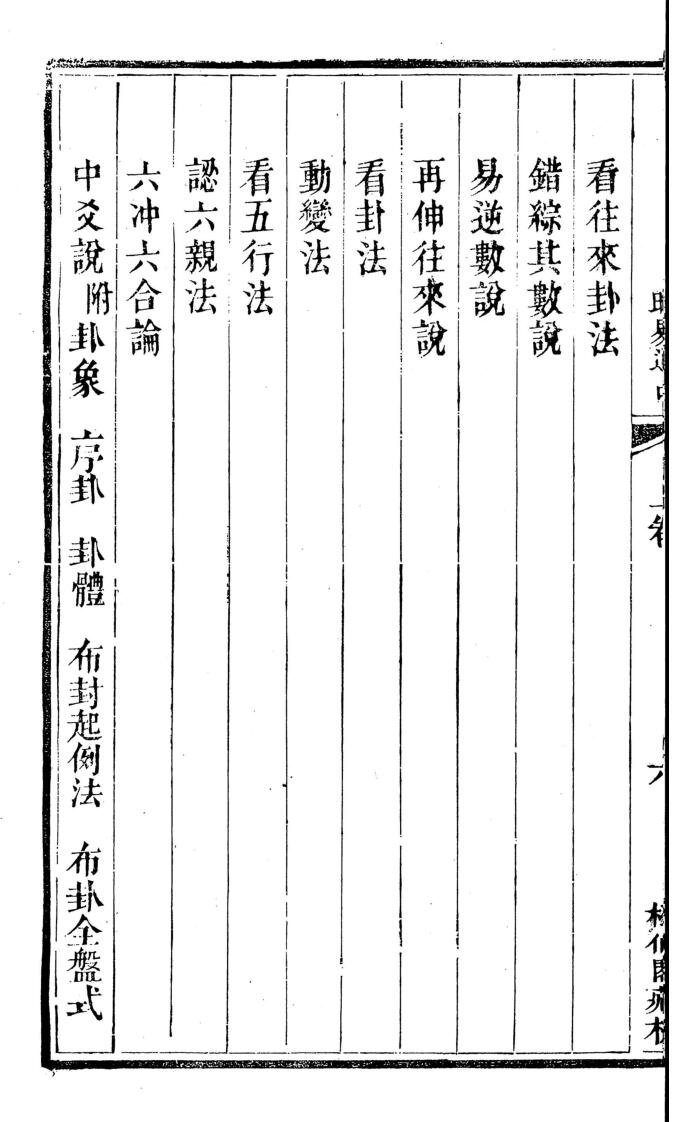 看往來卦法
錯綜其數說
易逆數說
再伸往來說
看卦法
動變法
看五行法
認六親法
六冲六合論
中爻說 附 卦象 序卦 卦體 布封起例法 布卦全盤式